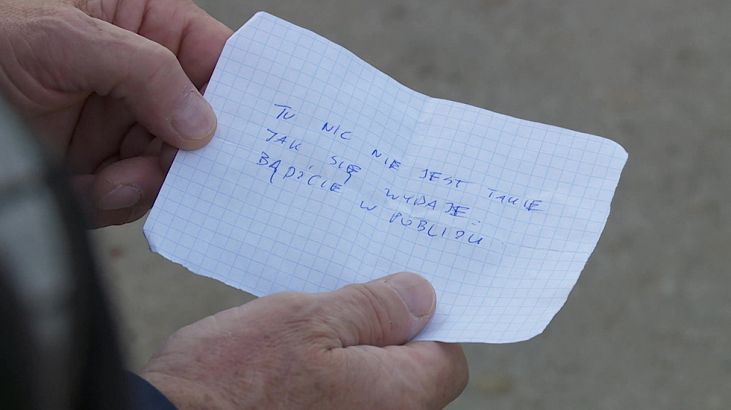 TU NIC NIE JEST TAKIE
JAK SIĘ WYDAJE.
BĄDŹCIE W POBLIŻU